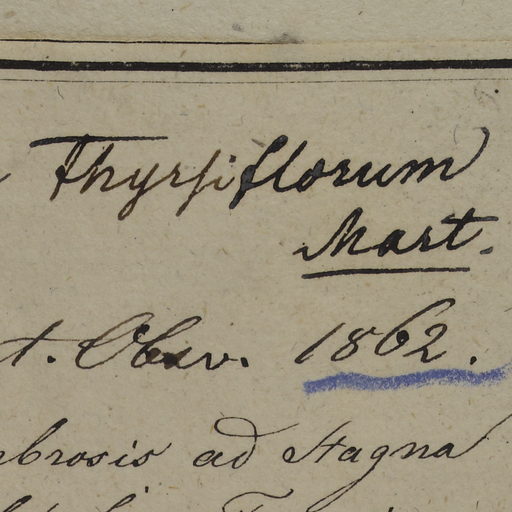 Thyrsiflorum
Mart.
t. Obsv. 1862.
mbrosis ad stagna